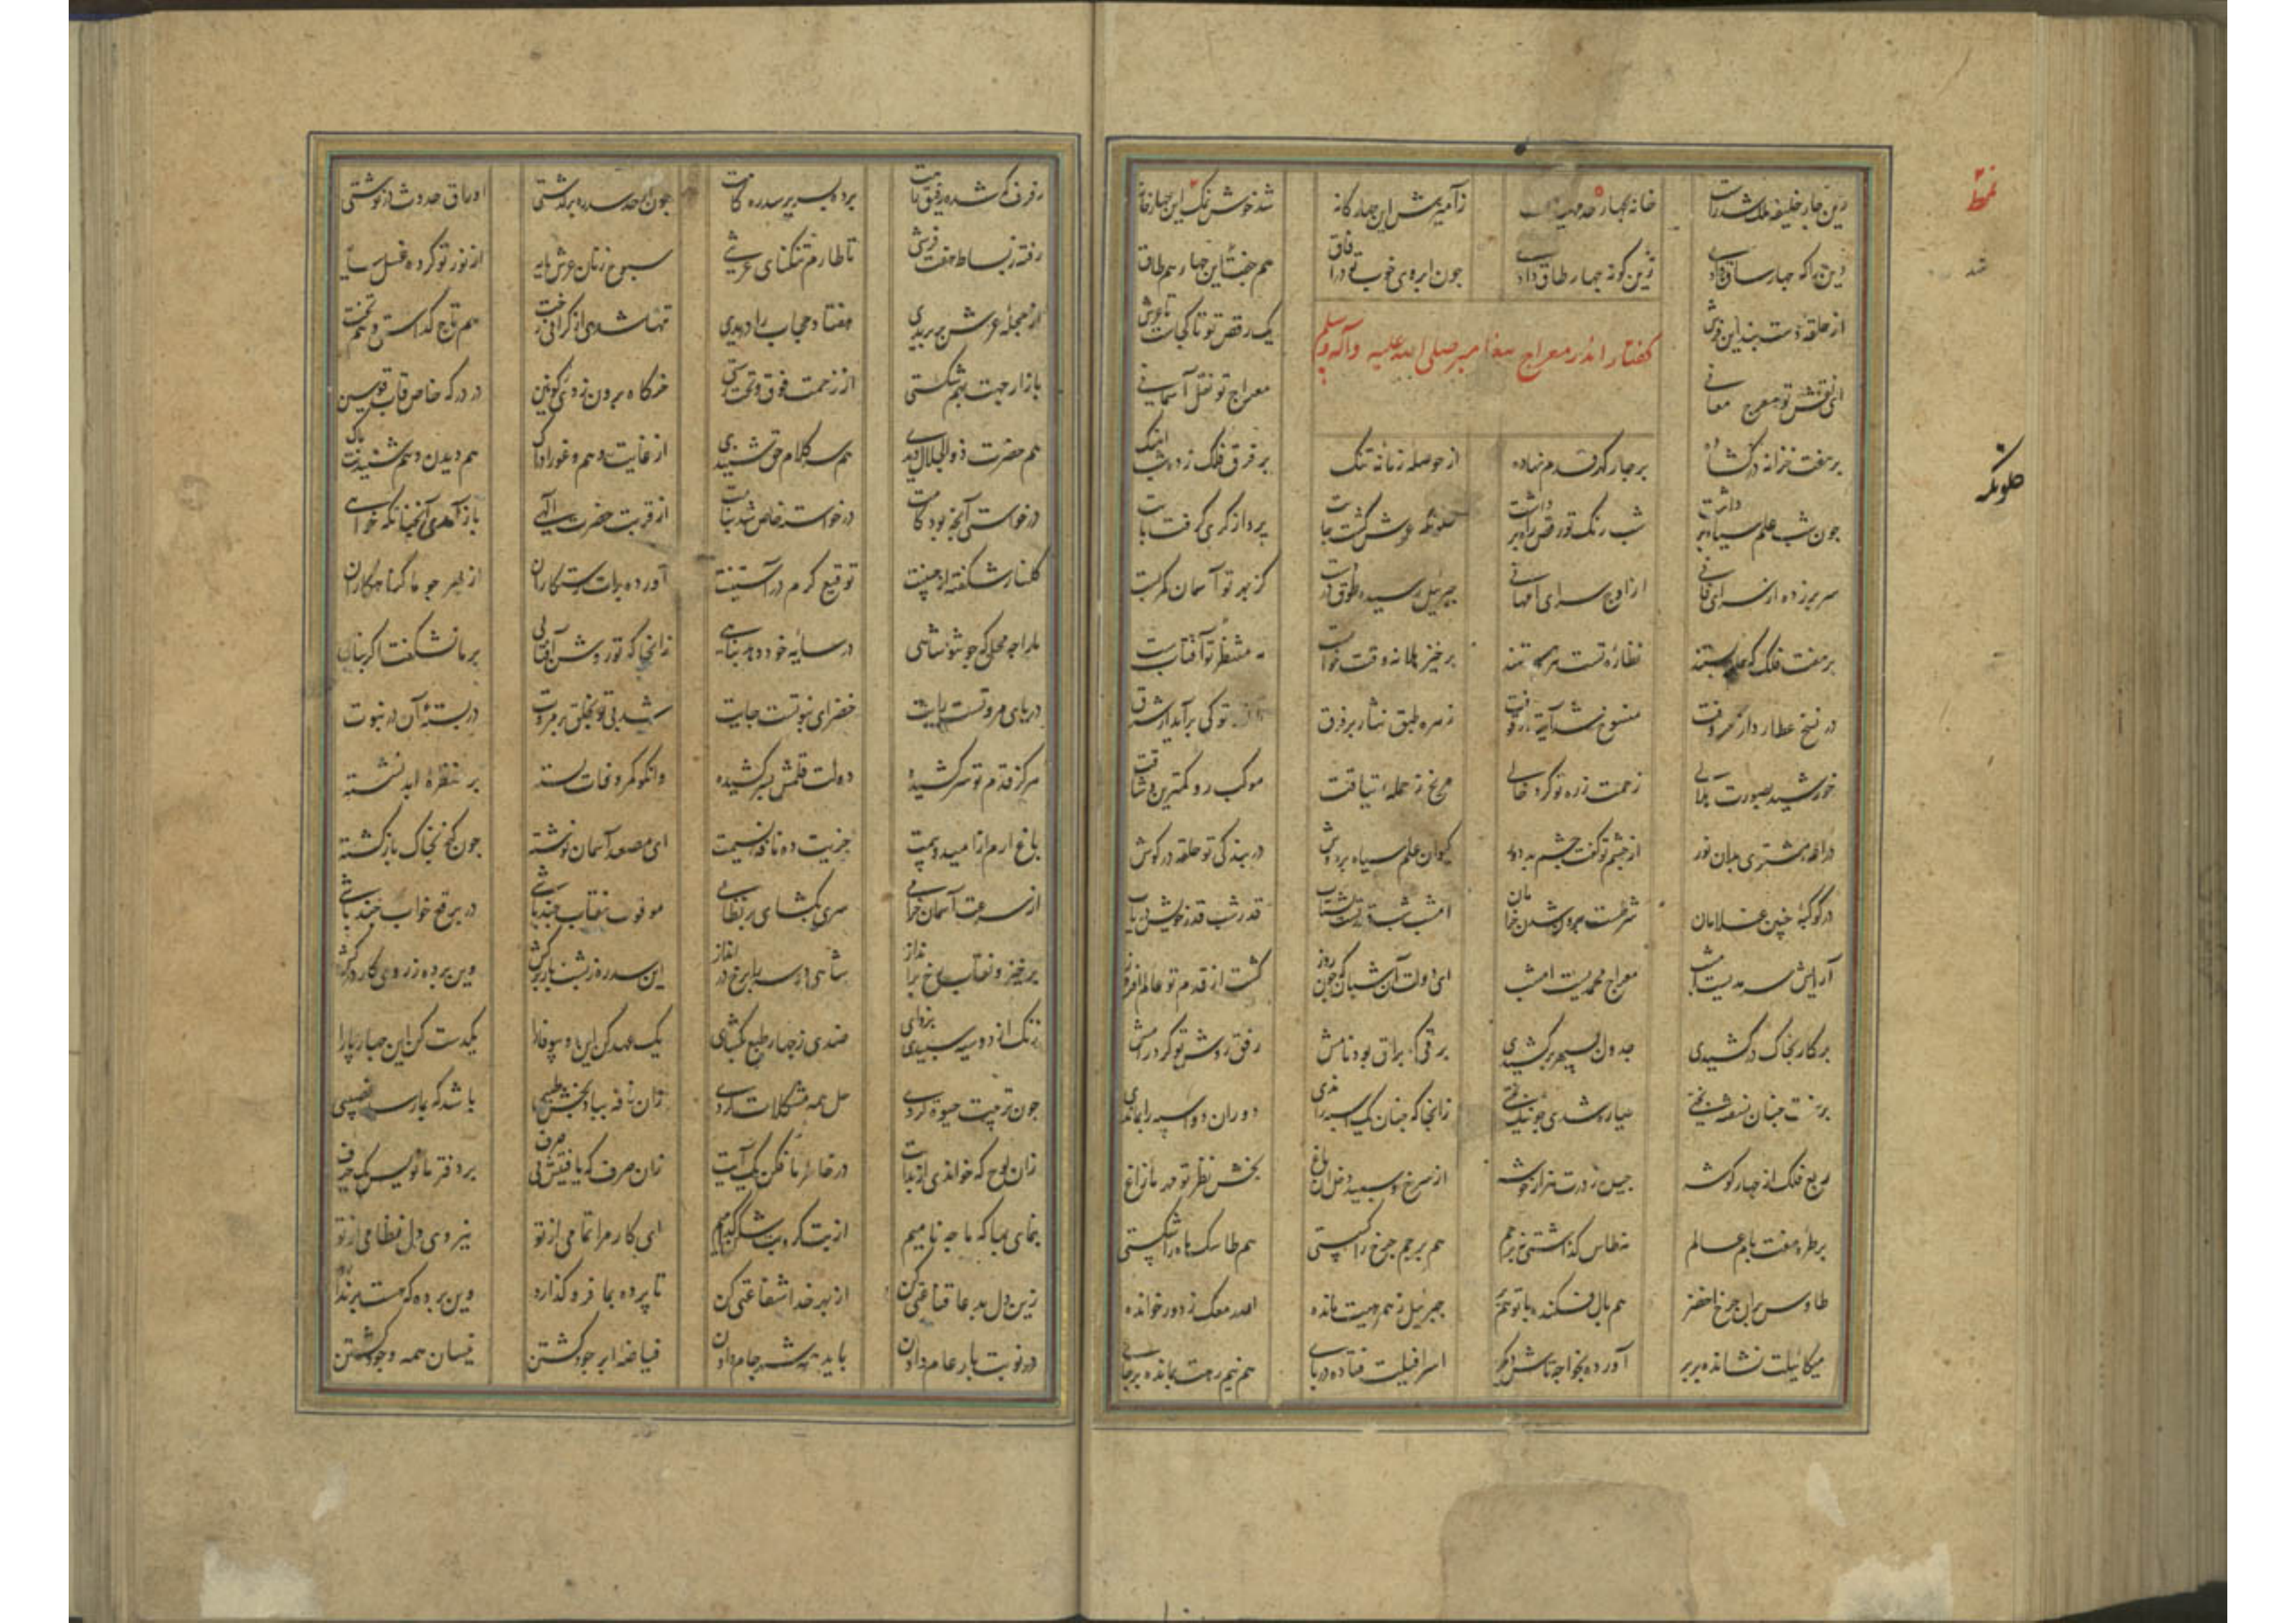 زین چار خلیفه ملک شد راست خانه بچهار حد مهیاست زآمیزش این چهارگانه شد خوش نمک این چهارخانه
دین را که چهار ساق دادی زین گونه چهار طاق دادی چون ابروی خوب تو در آفاق هم جفت این چهار هم طاق
از حلقه دست بند این فرش یک رقص تو تا کجاست تا عرش
گفتار اندر معراج پیغامبر صلی الله علیه وآله وسلم
ای نقش تو معرج معانی معراج تو نقل آسمانی
بر هفت خزانه در گشاده بر چار گهر قدم نهاده از حوصله زمانه تنگ بر فرق فلک زده شباهنگ
چون شب علم سیاه برداشت شب رنگ تو رقص راه برداشت خلوتگه عرش گشت جایت پرواز پری گرفت پایت
سر برزده از سرای فانی از اوج سرای ام هانی جبریل رسید طوق در دست کز بهر تو آسمان کمر بست
بر هفت فلک که حلقه بستند نظاره تست هر چه هستند برخیز هلا نه وقت خوابست مه منتظر تو آفتابست
در نسخ عطارد از حروفت منسوخ شد آیة وقوفت زهره طبق نثار بر فرق تا تو کی برآید از شرق
خورشید بصورت هلالی زحمت زره تو کرده خالی مریخ ز جمله یتاقت موکب رو کمترین وشاقت
دراجه مشتری بدان نور از چشم تو گفت چشم بد دور کیوان علم سیاه بر دوش در بندگی تو حلقه در گوش
در کوکبه چنین غلامان شرطست برون شدن خرامان امشب شب قدر تست بشتاب قدر شب قدر خویش دریاب
آرایش سرمدیست امشب معراج محمدیست امشب ای دولت آن شبی که چون روز گشت از قدم تو عالم افروز
پرگار بخاک در کشیدی جدول بسپهر برکشیدی برقی که براق بود نامش رفق روش تو کرد رامش
بر سفت چنان نسفته تختی طیاره شدی چو نیک بختی زانجا که چنان یک اسبه راندی دوران دو اسبه را بماندی
ربع فلک از چهار گوشه جبریل ز درت هزار خوشه از سرخ و سپید دخل آن باغ بخش نظر تو مهر مازاغ
بر طره هفت بام عالم نه طاس گذاشتی نه پرچم هم پرچم چرخ را گسستی هم طاسک ماه را شکستی
طاوس پران چرخ اخضر هم بال فکنده با تو هم پر جبریل ز همرهیت مانده الله معک ز دور خوانده
میکائیلت نشانده بر سر آورده بخواجه تاش دیگر اسرافیلت فتاده در پای هم نیم رهت بمانده بر جای
رفرف که شده رفیق راهت برده بسریر سدره گاهت چون از حد سدره برگذشتی اوراق حدوث درنوشتی
رفته ز بساط هفت فرشی تا طارم تنگنای عرشی سبوح زنان عرش پایه از نور تو کرده عرش سایه
از حجله عرش بر پریدی هفتاد حجاب را دریدی تنها شدی از گرانی رخت هم تاج گذاشتی و هم تخت
بازار جهت بهم شکستی از زحمت فوق و تحت رستی خرگاه برون زدی ز کونین در درگه خاص قاب قوسین
هم حضرت ذوالجلال دیدی هم سر کلام حق شنیدی از غایت وهم و غور ادراک هم دیدن و هم شنیدنت پاک
درخواستی آنچه بود کامت درخواسته خاص شد بنامت از قربت حضرت الهی باز آمدی آنچنانکه خواهی
گلنار شکفته از جبینت توقیع کرم در آستینت آورده برات رستگاران از بهر چو ما گناهکاران
ما را چه محل که چو تو شاهی در سایه خود دهد پناهی زانجا که تو روشن آفتابی بر ما نشگفت اگر بتابی
دریای مروتست رایت خضرای نبوتست جایت شد بی تو بخلق بر مروت دربسته تر آن در نبوت
هر کز قدم تو سر کشیده دولت قلمش بسر کشیده وانکو کمر وفات بسته بر منظره ابد نشسته
باغ ارم از امید و بیمت جزیت ده نافه نسیمت ای مصعد آسمان نوشته چون گنج بخاک بازگشته
از سرعت آسمان خرامی سری بگشای بر نظامی موقوف نقاب چند باشی در برقع خواب چند باشی
برخیز و نقاب رخ برانداز شاهی دو سه را برخ درانداز این سفره ز پشت بار برکش وین پرده ز روی کار درکش
رنگ از دو سیه سپید بزدای ضدی ز چهار طبع بگشای یک عهد کن این دو بیوفا را یکدست کن این چهار پا را
چون تربیت حیوة کردی حل همه مشکلات کردی زان نافه بباد بخش طیبی باشد که بما رسد نصیبی
زان لوح که خواندی از بدایت در خاطر ما فکن یک آیت زان صرف که یافتیش بی صرف بر دفتر ما نویس یک حرف
بنمای بما که ما چه نامیم وز بت گر و بت شکن کدامیم ای کار مرا تمامی از تو نیروی دل نظامی از تو
زین دل بدعا قناعتی کن از بهر خدا شفاعتی کن تا پرده بما فرو گذارد وین پرده که هست برندارد
در نوبت بار عام دادن باید همه شهر جام دادن فیاضه ابر جود گشتن نیسان همه وجود گشتن
نمط
شد
خلوتگه